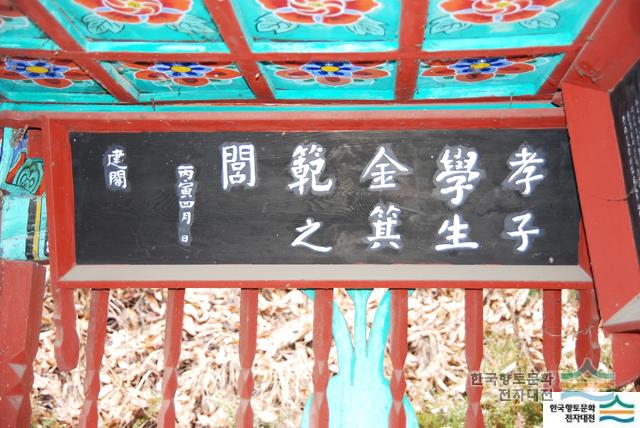 孝子
學生
金箕
範之
閭
丙寅四月 日
建閣
한국향토문화
전자대전
한국향토문화
전자대전